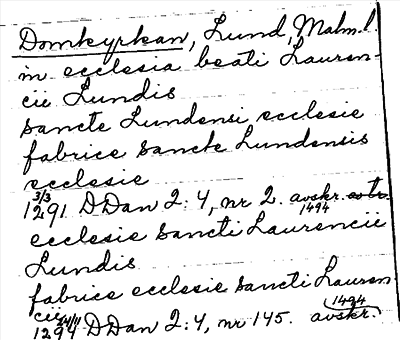 Domkyrkan, Lund, Malm.l.
in ecclesia beati Lauren-
cii Lundis
sancte Lundensi ecclesie
fabrice sancte Lundensis
ecclesie
3/3
1291 DDan 2:4, nr 2. avskr.
1494
ecclesie sancti Laurencii
Lundis
fabrice ecclesie sancti Lauren
cii
1494
1294 DDan 2:4, nr 145. avskr.